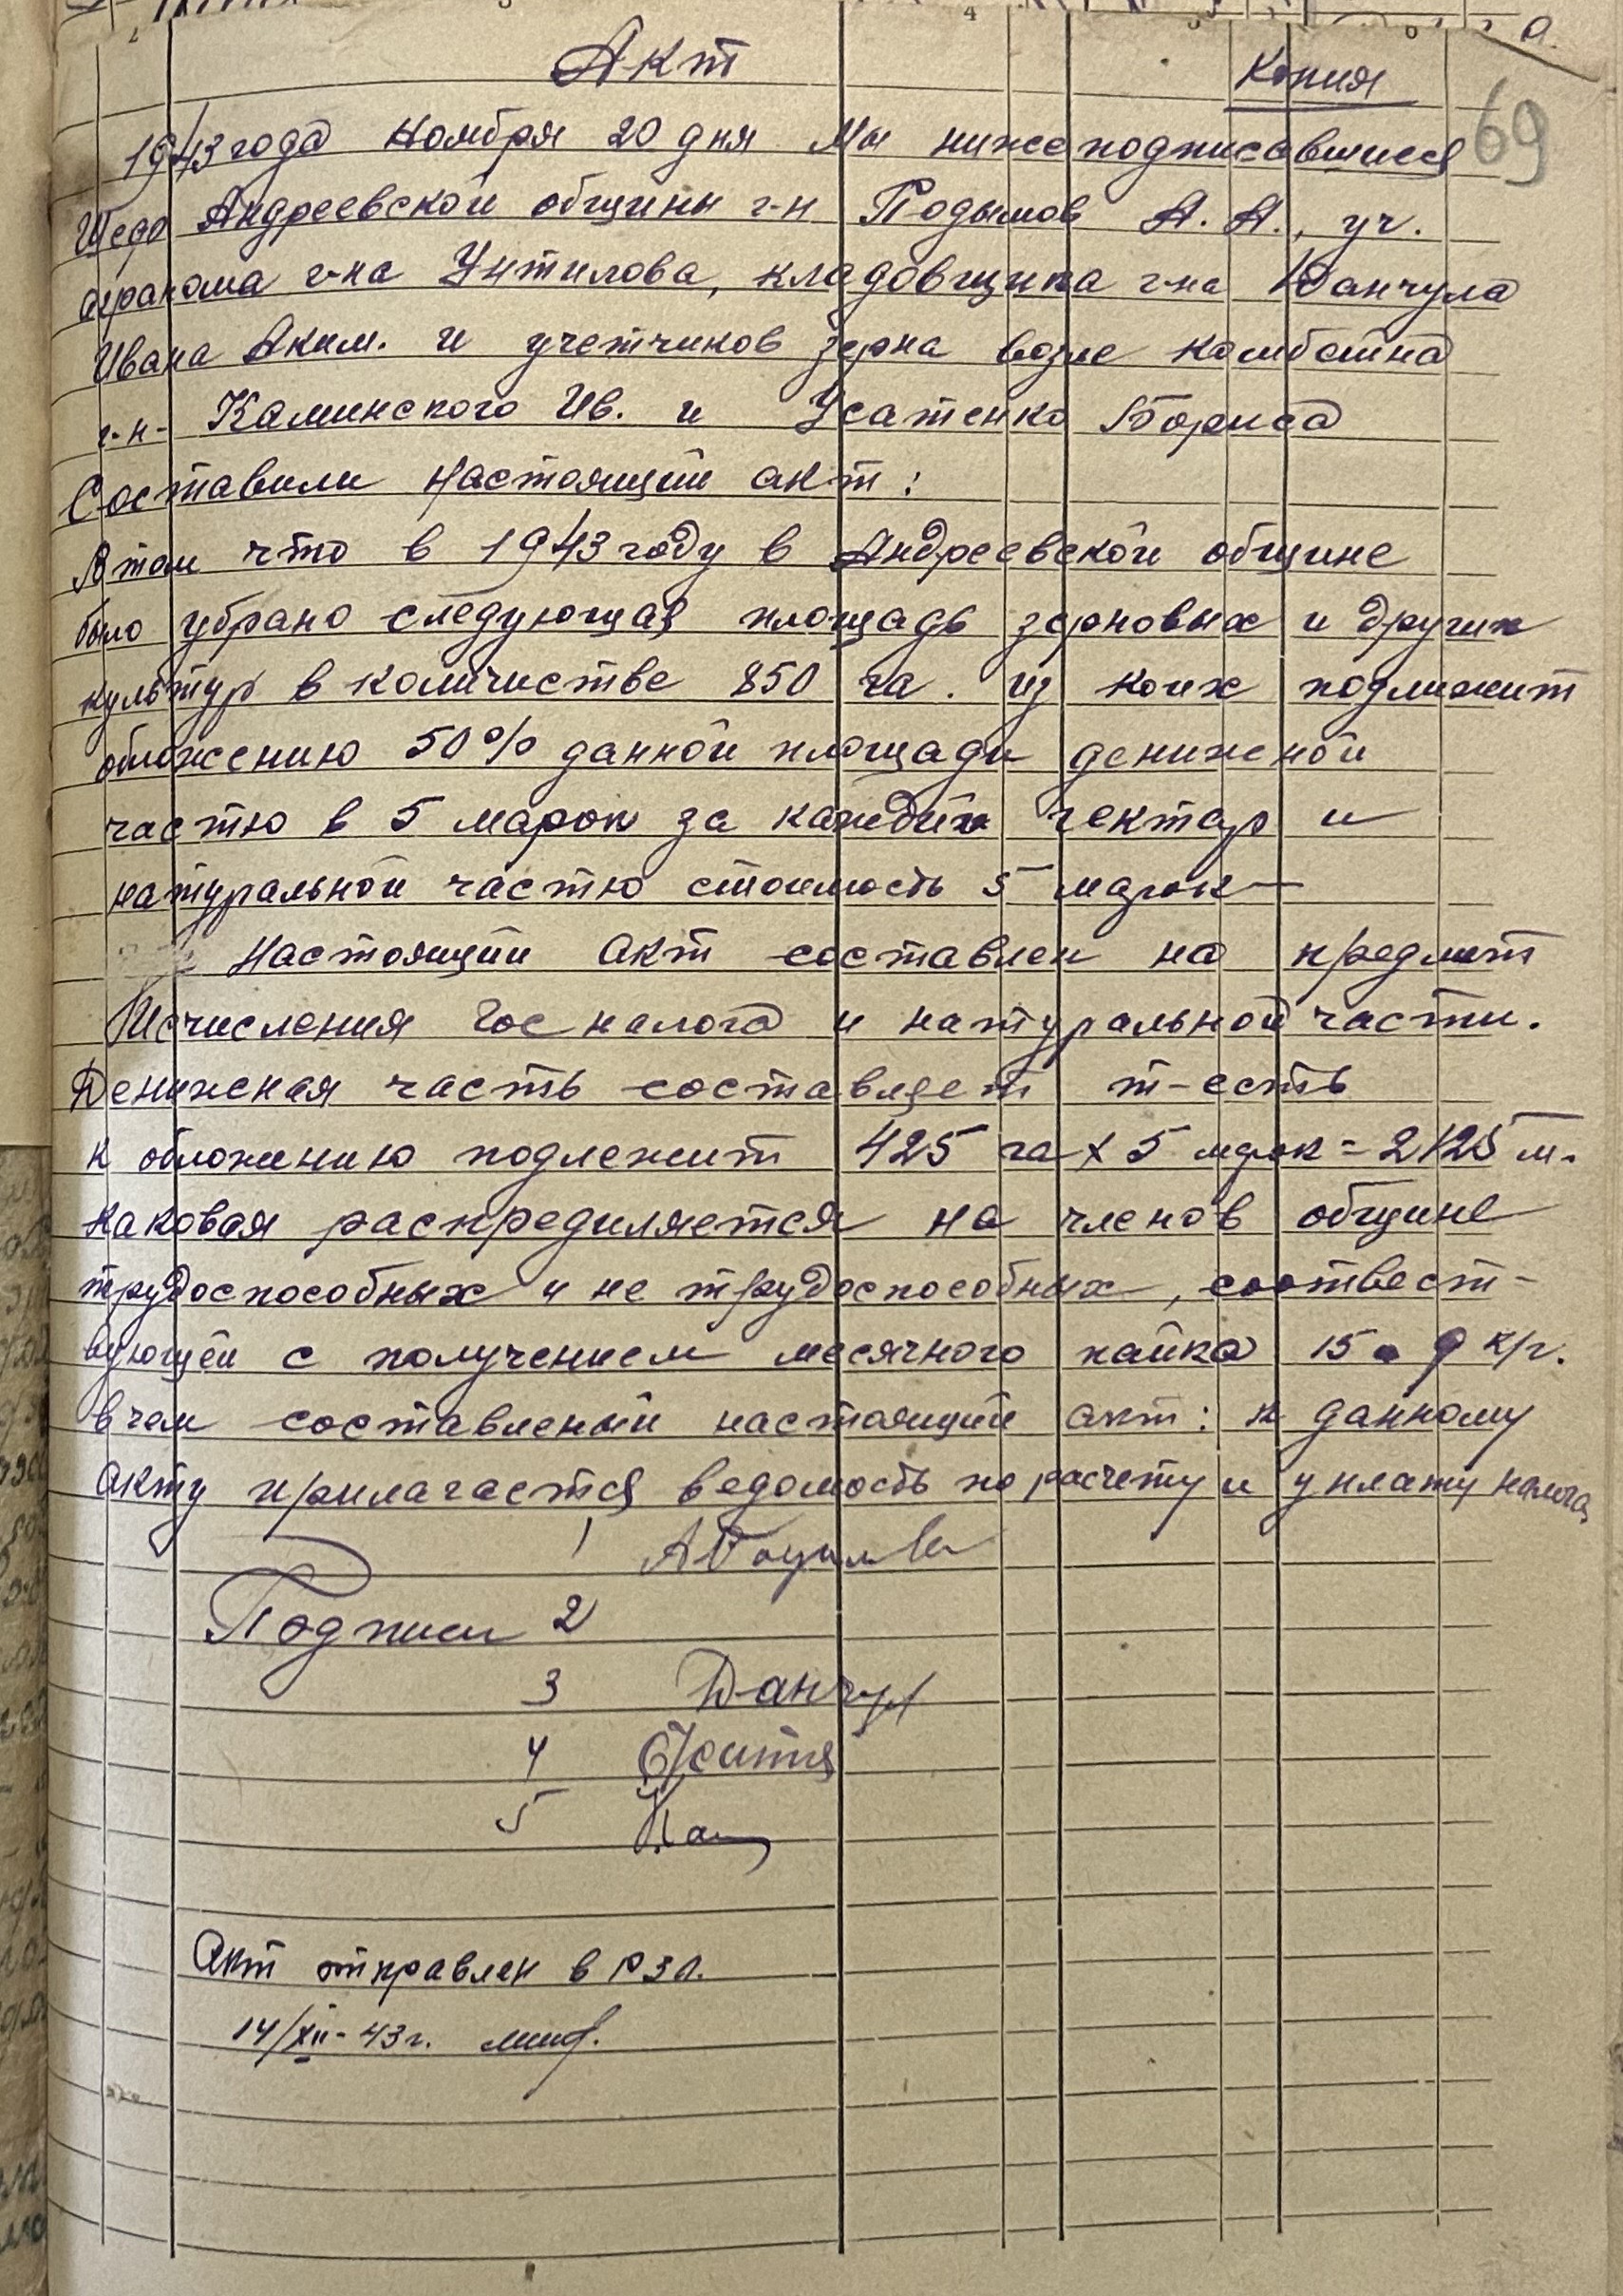 Акт
Копия
69
1943 года Ноября 20 дня Мы нижеподписавшиеся
Шеф Андреевской общины г-н Подымов А. А., уч.
агранома г-на Унтилова, кладовщика г-на Данчула
Ивана Аким. и учетчиков зерна возле комбайна
г-н- Каминского Ив. и Усатенко Бориса
Составили настоящий акт:
В том что в 1943 году в Андреевской общине
было убрано следующая площадь зерновых и других
культур в количистве 850 га. из коих подлижит
обложению 50% данной площади дениженой
частю в 5 марок за каждый гектар и
натуральной частю стоимость 5 марок—
Настоящий акт составлен на предмет
Исчисления Гос налога и натуральной части.
Денижная часть составляет т-есть
к обложению подлежит 425 га х 5 марок = 2125 м.
каковая распредиляется на членов общине
трудоспособных и не трудоспособных, соотвест-
вующей с получением месячного пайка 15 9 кгр.
в чем составленый настоящий акт: к данному
акту прилагается ведомость по расчету и уплату налога
1
Подписи 2
3 Данчул
4
5
Акт отправлен в РЗО.
14/XII-43 г.